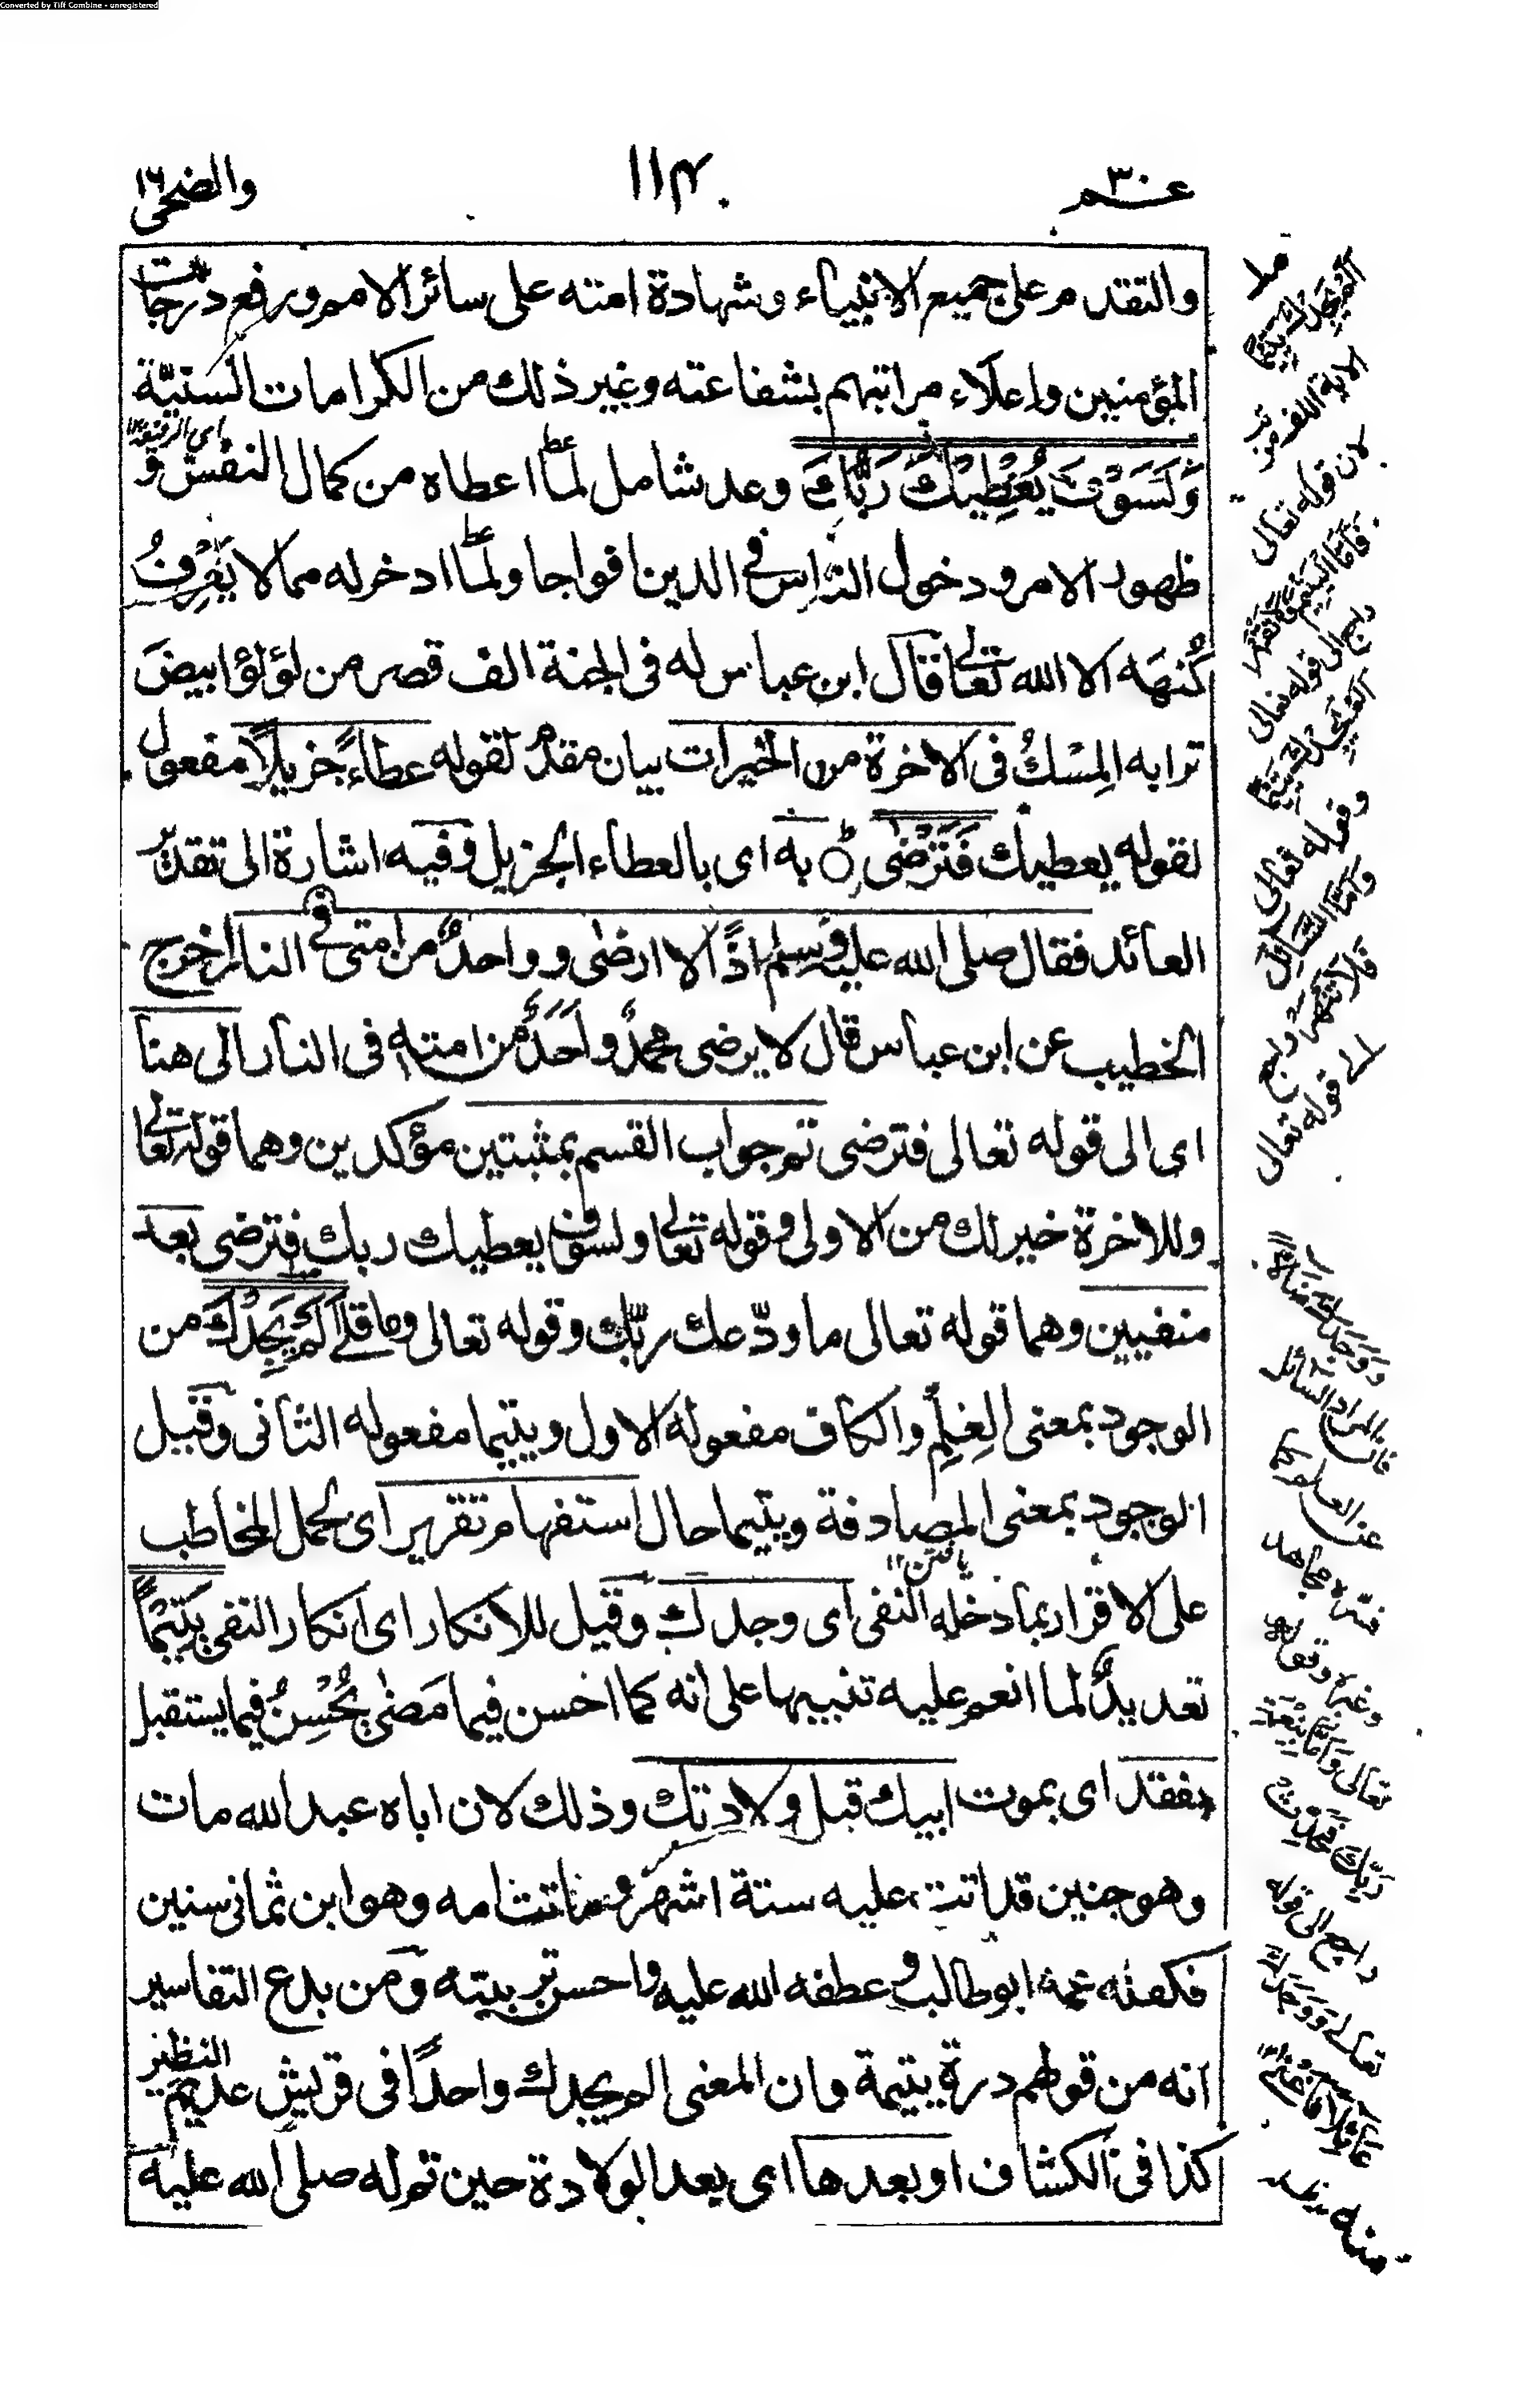 Converted by Tiff Combine - unregistered
عـــم ٣٠
١١٣٠
والضحى
والتقدم على جميع الانبياء وشهادة امته على سائر الامم ورفع درجات
المؤمنين واعلاء مراتبهم بشفاعته وغير ذلك من الكرامات السنيّة
اى الرفيعة ١٢
وَلَسَوْفَ يُعْطِيْكَ رَبُّكَ وعد شامل لمّا اعطاه من كمال النفس و
ظهور الامر ودخول النّاس فى الدين افواجا ولمّا ادخر له مما لا يَعْرِفُ
كُنهَه الا الله تعالى قال ابن عباس له فى الجنة الف قصر من لؤلؤ ابيضَ
ترابه المِسْكُ فى الاخرة من الخيرات بيان مقدم لقوله عطاءً جزيلًا مفعول
لقوله يعطيك فَتَرْضٰى به اى بالعطاء الجزيل وفيه اشارة الى تقدير
العائد فقال صلى الله عليه وسلم اذًا لا ارضٰى و واحدٌ من امتى فى النار اخرج
الخطيب عن ابن عباس قال لا يرضى محمدٌ واَحَدٌ من امته فى النار الى هنا
اى الى قوله تعالى فترضى تم جواب القسم بمثبتين مؤكدين وهما قوله تعالى
وللاخرة خير لك من الاولى وقوله تعالى ولسوف يعطيك ربك فترضى بعد
منفيين وهما قوله تعالى ما ودّعك ربّك وقوله تعالى وما قلى اَلَمْ يَجِدْكَ من
الوجود بمعنى العِلمِ والكاف مفعوله الاول ويتيما مفعوله الثانى وقيل
الوجود بمعنى المصادفة ويتيما حال استفهام تقرير اى لحمل المخاطب
يافتن ١٢
على الاقرار بما دخله النفى اى وجدك وقيل للانكار اى انكار النفى يَتِيْمًا
تعديدٌ لما انعم عليه تنبيها على انه كما احسن فيما مَضٰى يُحْسِنُ فيما يستقبل
بفقد اى بموت ابيك قبل ولادتك وذلك لان اباه عبد الله مات
وهو جنين قد اتت عليه ستة اشهر وماتت امه وهو ابن ثمانى سنين
فكفله عمه ابو طالب وعطفه الله عليه واحسن تربيته ومن بدع التفاسير
انه من قولهم درة يتيمة وان المعنى الم يجدك واحدًا فى قريش عديم النظير
كذا فى الكشاف او بعدها اى بعد الولادة حين تم له صلى الله عليه
الم يجدك يتيما
الاية
لان قوله تعالى
فاما اليتيم فلا تقهر
راجع الى قوله تعالى
الم يجدك يتيما
وقوله تعالى
واما السائل
فلا تنهر راجع
الى قوله تعالى
ووجدك ضالا
فان المراد السائل
عن العلم كما
فسره مجاهد
وغيره وقوله
تعالى واما بنعمة
ربك فحدث
راجع الى قوله
تعالى ووجدك
عائلا فاغنى ١٢
منه